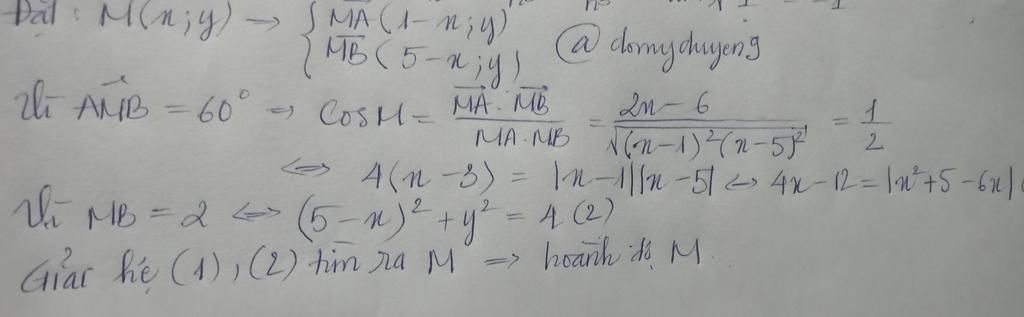 Đặt : M(x;y) → { MA (1-x; y)
{ MB ( 5-x; y) @domyduyeng
Vì AMB = 60° → CosM = MA . MB / MA.MB = 2x-6 / √(x-1)²(x-5)² = 1/2
⇔ 4(x-3) = |x-1||x-5| ⇔ 4x-12 = |x²+5-6x|
Vì MB = 2 ⇔ (5-x)² + y² = 4 (2)
Giải hệ (1), (2) tìm ra M ⇒ hoành độ M